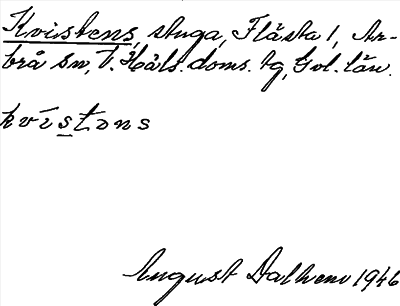 Kvistens, stuga, Flästa 1, Ar-
brå sn, V. Häls. doms. tg, Gvl. län.
kvistɘns
August Dalhem 1946